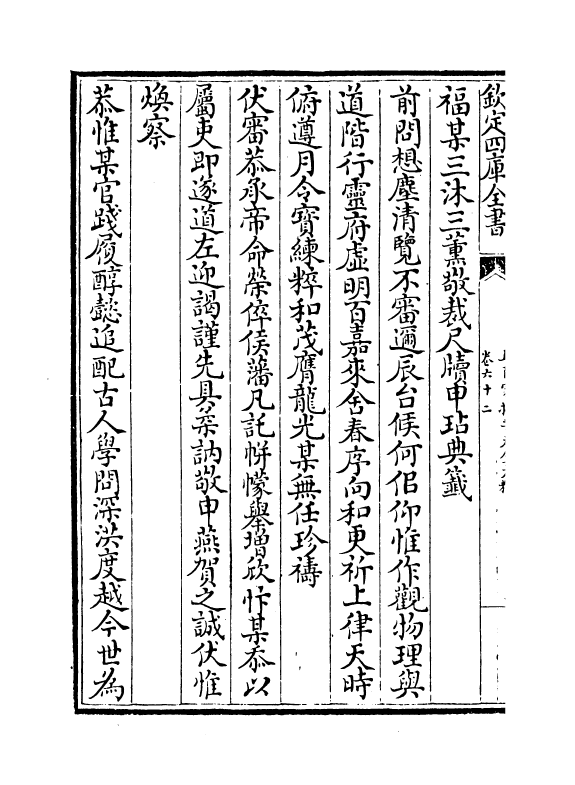 欽定四庫全書
卷六十二
福某三沐三薰敬裁尺牘申玷典籤
前問想塵清覽不審邇辰台候何佀仰惟作觀物理與
道階行靈府虛明百嘉來舍春序向和更祈上律天時
俯遵月令寳練粹和茂膺龍光某無任珍禱
伏審恭承帝命榮倅侯藩凡託帡幪舉增欣忭某忝以
屬吏即遂道左迎謁謹先具椉訥敬申燕賀之誠伏惟
焕察
恭惟某官踐履醇懿追配古人學問深洪度越今世為